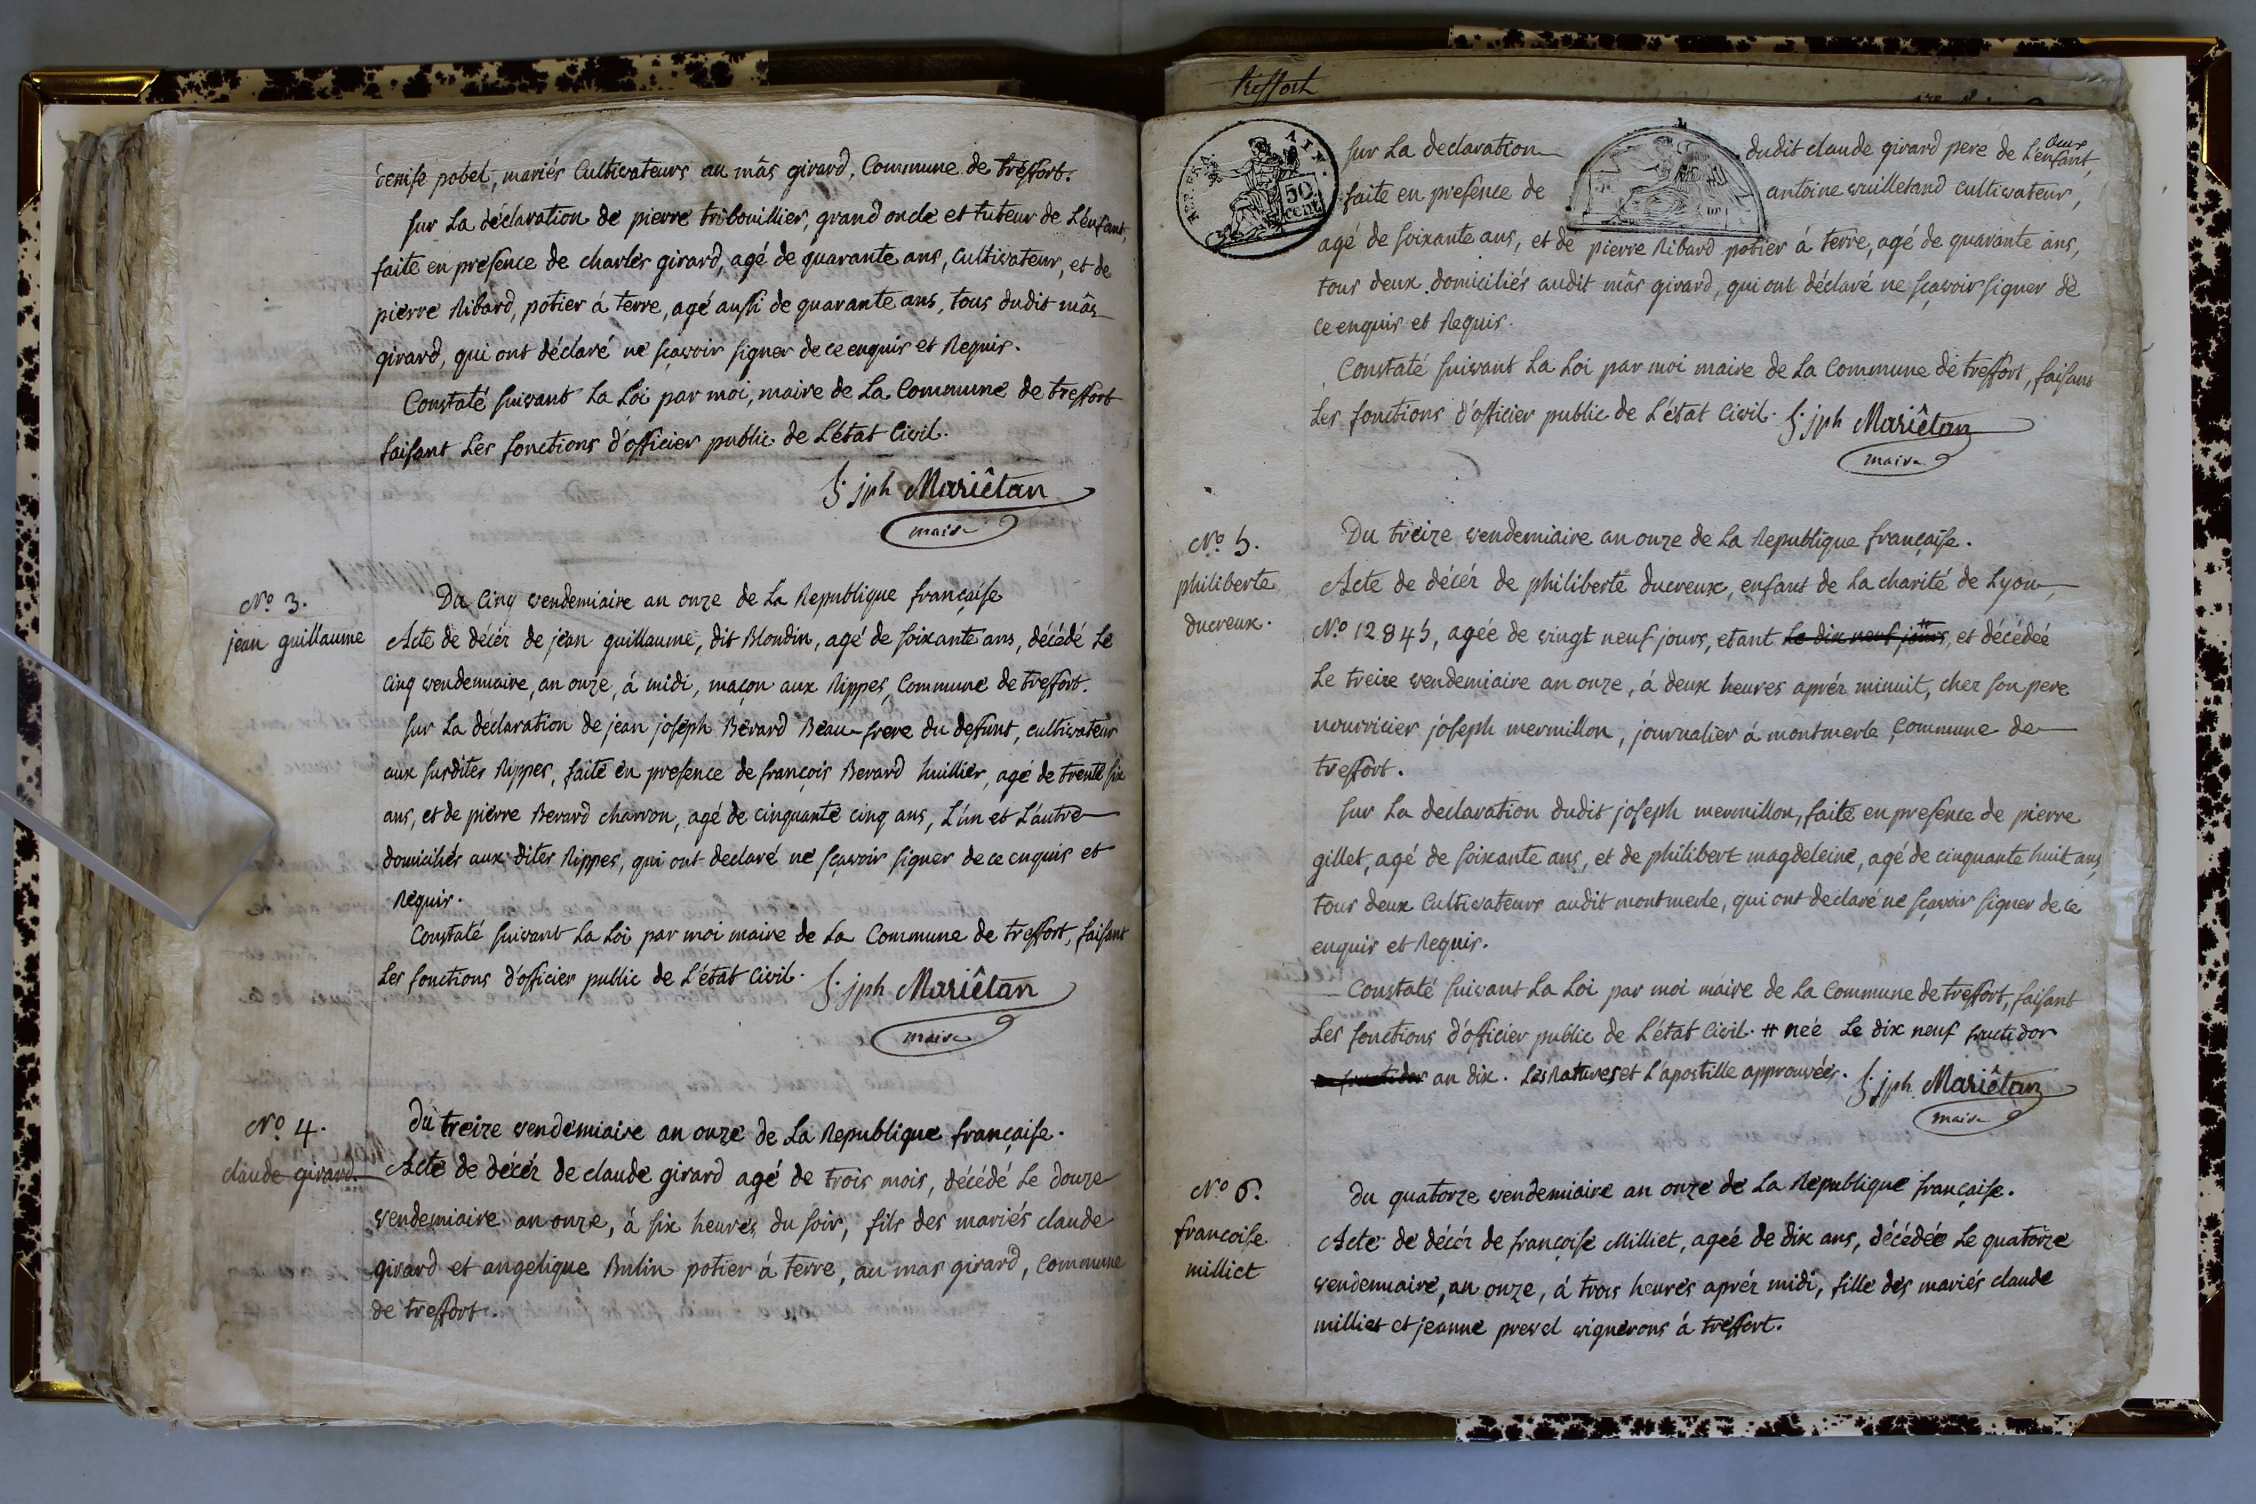 denise pobel, mariés Cultivateurs au mâs girard, Commune de treffort.
sur La déclaration de pierre tribouillier, grand oncle et tuteur de L'enfant,
faite en présence de charles girard, agé de quarante ans, Cultivateur, et de
pierre Ribard, potier á terre, agé aussi de quarante ans, tous dudit mâs
girard, qui ont déclaré ne sçavoir signer de ce enquis et Requis.
Constaté suivant La Loi par moi, maire de La Commune de treffort
faisant Les fonctions d'officier public de L'état Civil.
S. jph Mariêtan
maire
No. 3.
jean guillaume
Du Cinq vendemiaire an onze de La Republique française
Acte de décés de jean guillaume, dit Blondin, agé de soixante ans, décédé Le
cinq vendemiaire, an onze, á midi, maçon aux Rippes, Commune de treffort.
sur La déclaration de jean joseph Bérard Beau-frere du defunt, cultivateur
aux susdites Rippes, faite en presence de françois Berard huillier, agé de trente six
ans, et de pierre Berard charron, agé de cinquante cinq ans, L'un et L'autre
domiciliés aux dites Rippes, qui ont declaré ne sçavoir signer de ce enquis et
Requis.
Constaté suivant La Loi par moi maire de La Commune de treffort, faisant
Les fonctions d'officier public de L'état Civil. S. jph Mariêtan
maire
No. 4.
claude girard.
Du treize vendemiaire an onze de La Republique française.
Acte de décés de claude girard agé de trois mois, décédé Le douze
vendemiaire an onze, á six heures du soir, fils des mariés claude
girard et angelique Bulin potier á terre, au mas girard, Commune
de treffort.
treffort
REP. FRA. AIN.
50 cent.
sur La declaration dudit claude girard pere de L'enfant,
faite en presence de antoine vuilletand cultivateur,
agé de soixante ans, et de pierre Ribard potier á terre, agé de quarante ans,
tous deux domiciliés audit mâs girard, qui ont déclaré ne sçavoir signer de
ce enquis et Requis.
Constaté suivant La Loi par moi maire de La Commune de treffort, faisant
Les fonctions d'officier public de L'état Civil. S. jph Mariêtan
maire
No. 5.
philiberte
ducreux.
Du treize vendemiaire an onze de La Republique française.
Acte de décés de philiberte ducreux, enfant de La charité de Lyon,
No. 12845, agée de vingt neuf jours, etant Le dix neuf jours, et décédée
Le treize vendemiaire an onze, á deux heures aprés minuit, chez son pere
nourricier joseph mermillon, journalier á montmerle, Commune de
treffort.
sur La declaration dudit joseph mermillon, faite en presence de pierre
gillet, agé de soixante ans, et de philibert magdeleine, agé de cinquante huit ans,
tous deux Cultivateurs audit montmerle, qui ont declaré ne sçavoir signer de ce
enquis et Requis.
Constaté suivant La Loi par moi maire de La Commune de treffort, faisant
Les fonctions d'officier public de L'état Civil. # née Le dix neuf fructidor
fructidor an dix. Les Ratures et L'apostille approuvées. S. jph Mariêtan
maire
No. 6.
françoise
milliet
Du quatorze vendemiaire an onze de La Republique française.
Acte de décés de françoise Milliet, ageé de dix ans, décédée Le quatorze
vendemiaire, an onze, á trois heures aprés midi, fille des mariés claude
milliet et jeanne prevel vignerons á treffort.